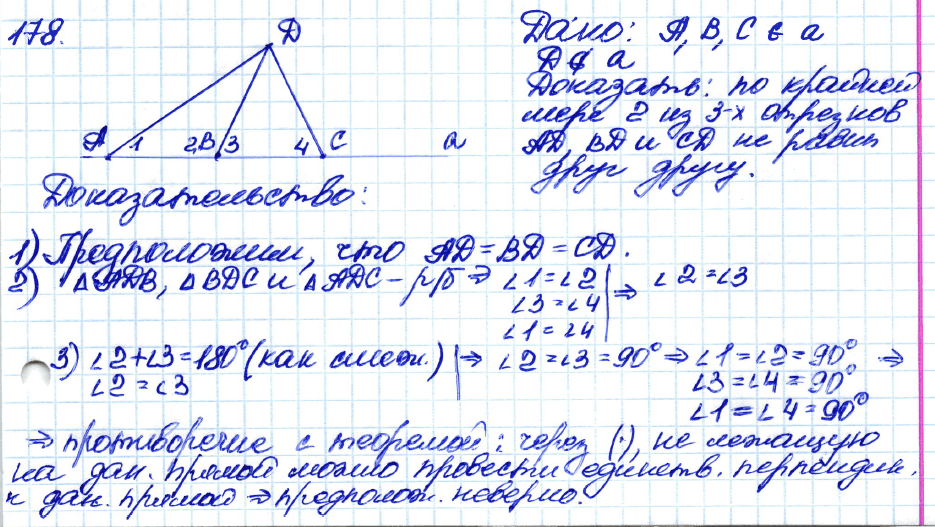 178.
D
A 1 2 B 3 4 C a
Дано: A, B, C ∈ a
D ∉ a
Доказать: по крайней
мере 2 из 3-х отрезков
AD, BD и CD не равны
друг другу.
Доказательство:
1) Предположим, что AD = BD = CD.
2) △ADB, △BDC и △ADC – р/б ⇒ ∠1 = ∠2 ⇒ ∠2 = ∠3
∠3 = ∠4
∠1 = ∠4
3) ∠2 + ∠3 = 180° (как смеж.) ⇒ ∠2 = ∠3 = 90° ⇒ ∠1 = ∠2 = 90° ⇒
∠2 = ∠3 ∠3 = ∠4 = 90°
∠1 = ∠4 = 90°
⇒ противоречие с теоремой: через (·), не лежащую
на дан. прямой можно провести единств. перпендик.
к дан. прямой ⇒ предполож. неверно.